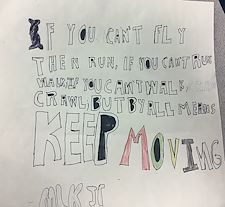 IF YOU CAN'T FLY
THEN RUN, IF YOU CAN'T RUN
WALK, IF YOU CAN'T WALK,
CRAWL, BUT BY ALL MEANS
KEEP MOVING
MLK JR